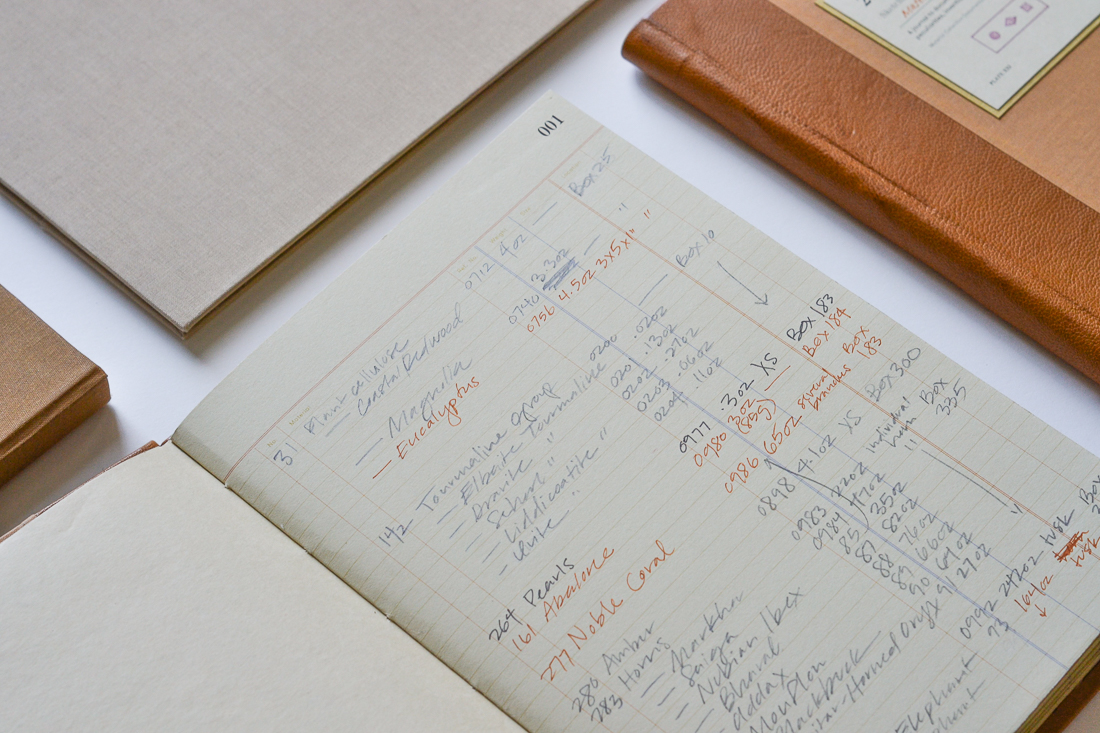 001
31 Plant cellulose
— Coastal Redwood 0712 4oz — Box 25
— Magnolia 0740 3.3oz — "
— Eucalyptus 0756 4.5oz 3x5x1" "
142 Tourmaline group
— Elbaite Tourmaline 0200 .02oz — Box 10
— Dravite .13oz
— Schorl " 0202 .27oz
— Liddicoatite " 0203 .06oz
— Uvite " 0204 .11oz
264 Pearls 0977 .3oz XS Box 183
161 Abalone 0980 3oz (85g) — Box 184
277 Noble Coral 0986 65oz branches Box 183
286 Amber 0898 4.1oz XS Box 300
283 Horns individual horn Box 335
— Markhor 0983
— Saiga 0984 47oz
— Nubian Ibex 85 35oz
— Bharal 87 82oz
— Addax 88 76oz
Mouflon 89 66oz
Blackbuck 90 69oz
-Horned Oryx 91 27oz
Elephant 0992 242oz tusk Box
93 164oz tusk
PLATE